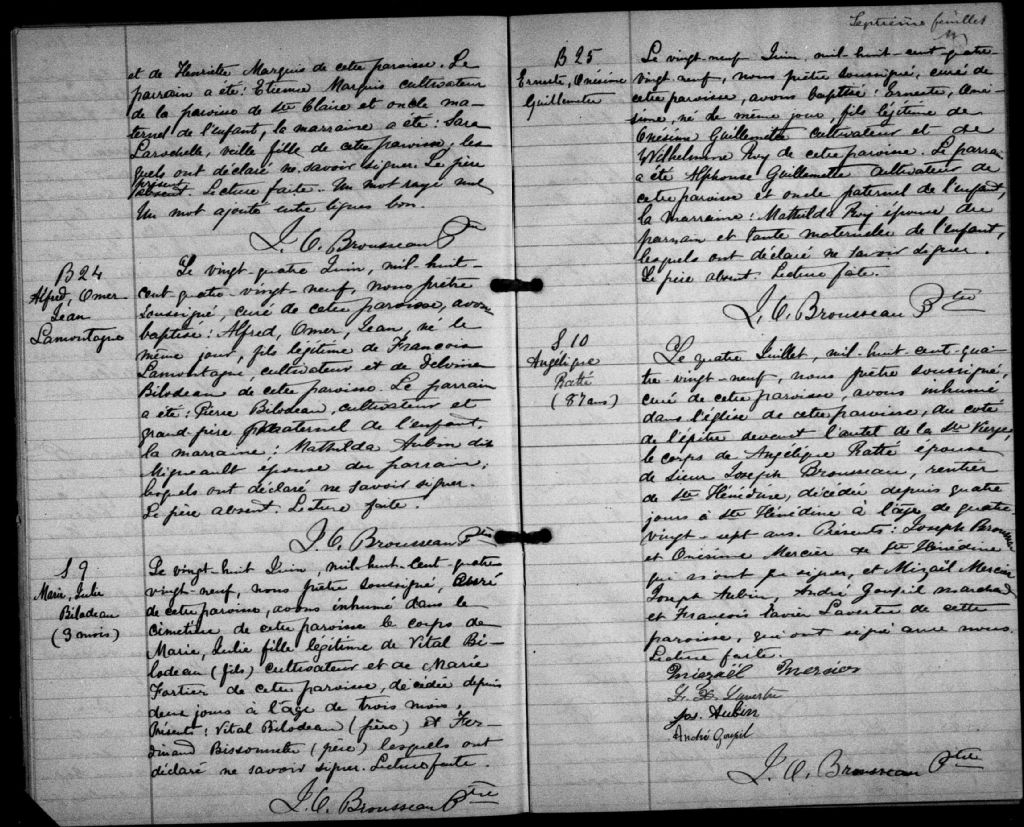 et de Henriette Marquis de cette paroisse. Le
parrain a été: Etienne Marquis cultivateur
de la paroisse de Ste Claire et oncle ma-
ternel de l'enfant, la marraine a été: Sara
Larochelle, vieille fille de cette paroisse, les
quels ont déclaré ne savoir signer. Le père
présent
absent. Lecture faite. Un mot rayé nul
Un mot ajouté entre lignes bon.
J. O. Brousseau Ptre
B 24
Alfred, Omer
Jean
Lamontagne
Le vingt-quatre Juin, mil-huit-
cent-quatre-vingt-neuf, nous prêtre
soussigné, curé de cette paroisse, avons
baptisé: Alfred, Omer, Jean, né le
même jour, fils légitime de François
Lamontagne, cultivateur et de Delvina
Bilodeau de cette paroisse. Le parrain
a été: Pierre Bilodeau, cultivateur et
grand-père maternel de l'enfant,
la marraine: Mathilda Aubin dit
Migneault épouse du parrain,
lesquels ont déclaré ne savoir signer.
Le père absent. Lecture faite.
J. O. Brousseau Ptre
S 9
Marie, Julie
Bilodeau
(3 mois)
Le vingt-huit Juin, mil-huit-cent-quatre
vingt-neuf, nous prêtre soussigné, curé
de cette paroisse, avons inhumé dans le
cimetière de cette paroisse le corps de
Marie, Julie fille légitime de Vital Bi-
lodeau (fils) cultivateur et de Marie
Fortier de cette paroisse, décédée depuis
deux jours à l'âge de trois mois.
Présents: Vital Bilodeau (père) et Fer-
dinand Bissonnette (père) lesquels ont
déclaré ne savoir signer. Lecture faite.
J. O. Brousseau Ptre
Septième feuillet
B 25
Erneste, Onésime
Guillemette
Le vingt-neuf Juin, mil-huit-cent-quatre-
vingt-neuf, nous prêtre soussigné, curé de
cette paroisse, avons baptisé: Erneste, Oné-
sime, né le même jour, fils légitime de
Onésime Guillemette cultivateur et de
Wilhelmine Roy de cette paroisse. Le parrain
a été Alphonse Guillemette cultivateur de
cette paroisse et oncle paternel de l'enfant,
la marraine: Mathilda Roy épouse du
parrain et tante maternelle de l'enfant,
lesquels ont déclaré ne savoir signer.
Le père absent. Lecture faite.
J. O. Brousseau Ptre
S 10
Angélique
Ratté
(87 ans)
Le quatre Juillet, mil-huit-cent-qua-
tre-vingt-neuf, nous prêtre soussigné,
curé de cette paroisse, avons inhumé
dans l'église de cette paroisse, du coté
de l'épitre devant l'autel de la Ste Vierge,
le corps de Angélique Ratté épouse
de Sieur Joseph Brousseau, rentier
de Ste Hénédine, décédée depuis quatre
jours à Ste Hénédine à l'âge de quatre
vingt-sept ans. Présents: Joseph Brousseau
et Onésime Mercier de Ste Hénédine
qui n'ont pu signer, et Mizaël Mercier
Joseph Aubin, André Goupil marchand
et François Xavier Lavertu de cette
paroisse, qui ont signé avec nous.
Lecture faite.
Miezaël Mercier
F. X. Lavertu
Jos. Aubin
André Goupil
J. O. Brousseau Ptre